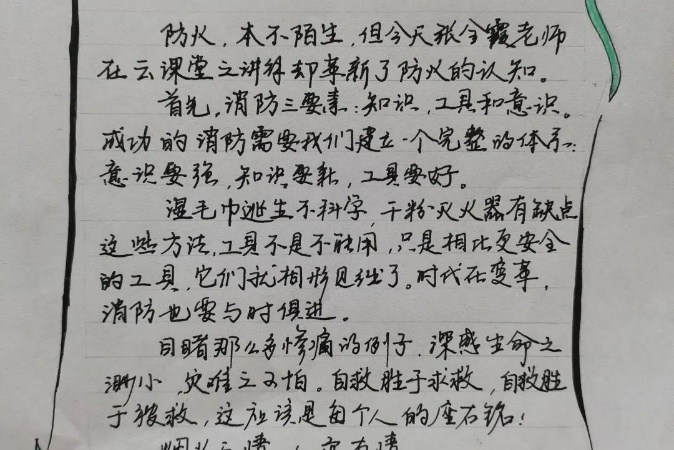 防火，本不陌生，但今天张全霞老师
在云课堂之讲稼却革新了防火的认知。
首先，消防三要素：知识，工具和意识。
成功的消防需要我们建立一个完整的体系：
意识要强，知识要新，工具要好。
湿毛巾逃生不科学，干粉灭火器有缺点
这些方法，工具不是不能用，只是相比更安全
的工具，它们就相形见绌了。时代在变革，
消防也要与时俱进。
目睹那么多惨痛的例子，深感生命之
渺小，灾难之可怕。自救胜于求救，自救胜
于被救，这应该是每个人的座石铭！